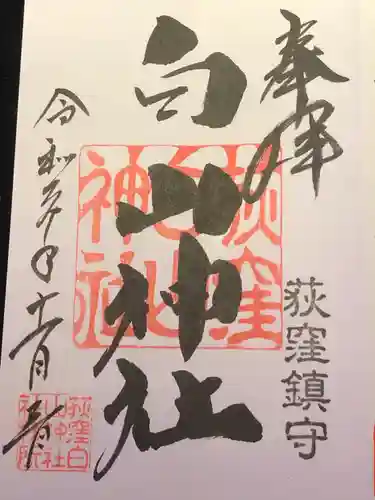 奉拝
荻窪鎮守
白山神社
荻窪白山神社
令和 年十一月
荻窪白
山神社